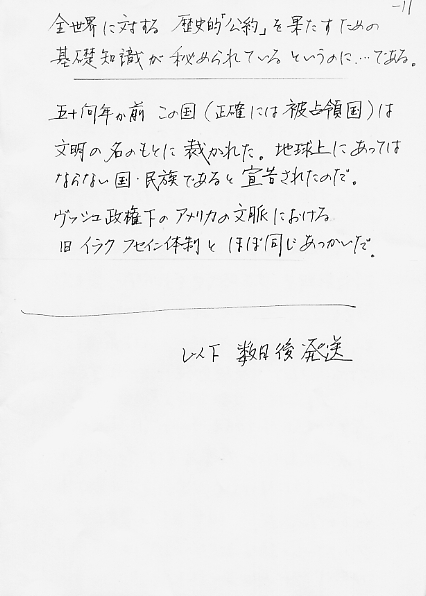 -11
全世界に対する 歴史的「公約」を果たすための
基礎知識が秘められているというのに…である。
五十何年か前 この国(正確には被占領国)は
文明の名のもとに裁かれた。地球上にあっては
ならない国・民族であると宣告されたのだ。
ヴッシュ政権下のアメリカの文脈における
旧イラク フセイン体制と ほぼ同じあつかいだ。
以下 数日後発送